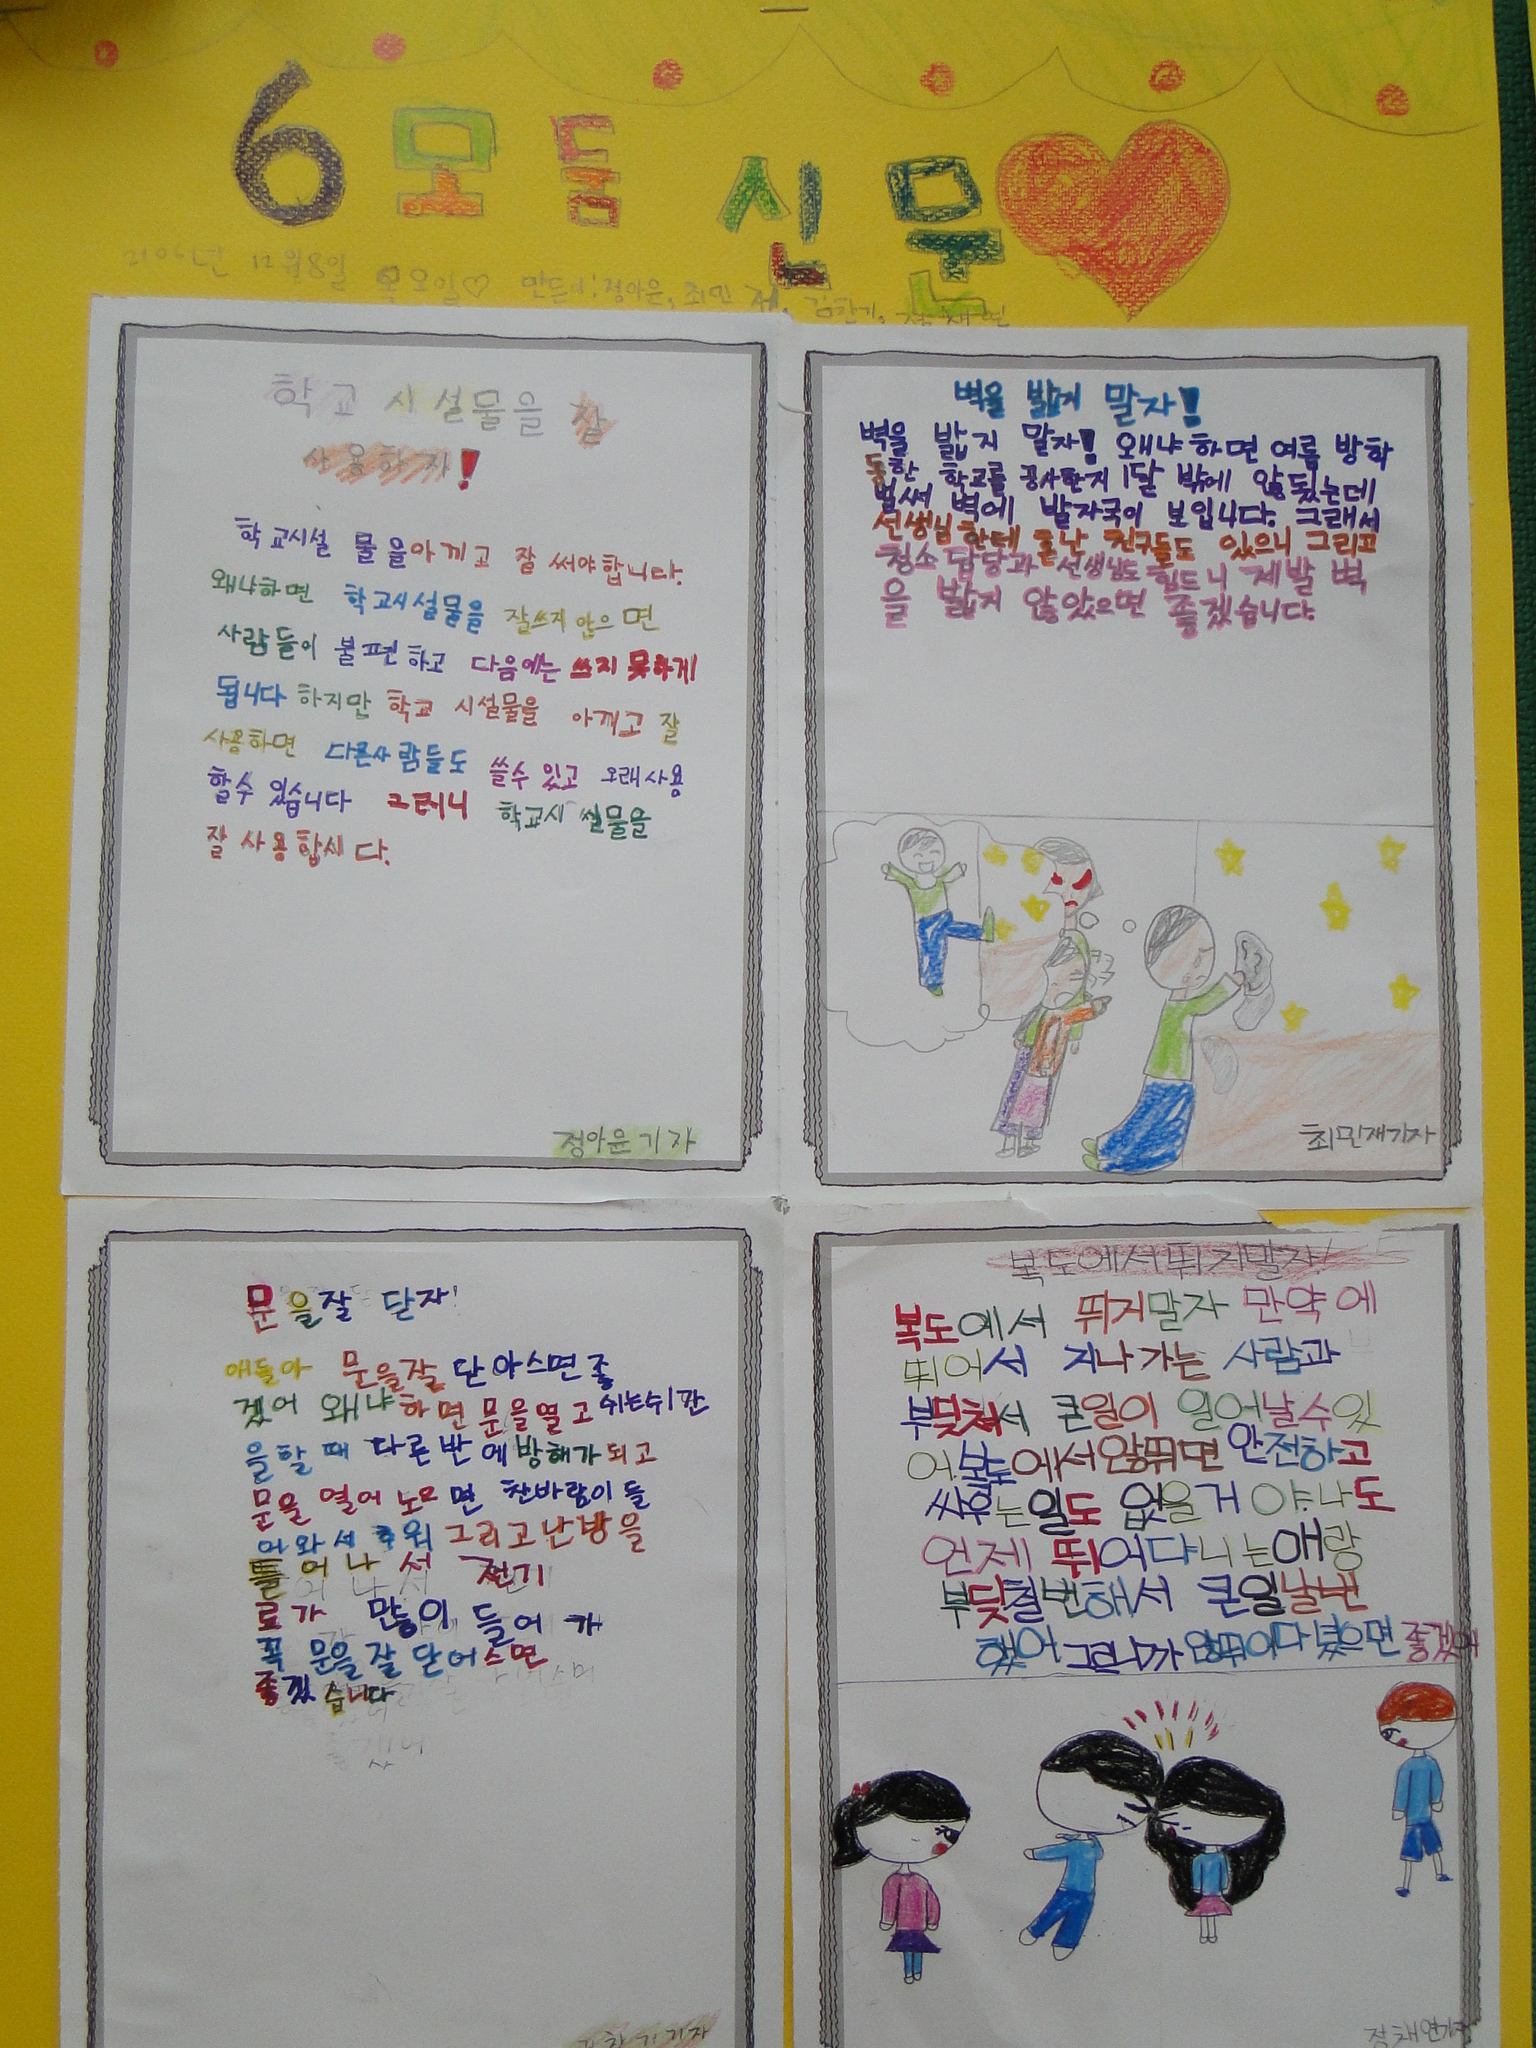 6모둠 신문
12월8일 목요일♡ 만든이:정아윤, 최민재,
학교 시설물을 잘
사용하자!
학교시설 물을아끼고 잘 써야합니다.
왜냐하면 학교시설물을 잘쓰지 안으면
사람들이 불편하고 다음에는 쓰지 못하게
됩니다 하지만 학교 시설물을 아끼고 잘
사용하면 다른사람들도 쓸수 있고 오래사용
할수 있습니다 그러니 학교시설물을
잘 사용합시다.
정아윤기자
벽을 밟지 말자!
벽을 밟지 말자! 왜냐하면 여름 방학
동한 학교를 공사한지 1달 밖에 않됬는데
벌써 벽에 발자국이 보입니다. 그래서
선생님한테 혼난 친구들도 있으니 그리고
청소 담당과 선생님도 힘드니 제발 벽
을 밟지 않았으면 좋겠습니다.
최민재기자
문을잘 닫자!
애들아 문을잘 닫아스면좋
겠어 왜냐하면 문을열고 쉬는쉬간
을할때 다른반에방해가되고
문을 열어노으면 찬바람이 들
어와서 추워 그리고난방을
틀어나서 전기
료가 많이 들어가
꼭 문을잘 닫어스면
좋겠습니다
복도에서뛰지말자!
복도에서 뛰거말자 만약에
뛰어서 지나가는 사람과
부딪쳐서 큰일이 일어날수있
어.복도에서않뛰면 안전하고
싸우는일도 없을거야.나도
언제 뛰어다니는애랑
부딪칠번해서 큰일날뻔
했어 그러니까 않뛰어다녔으면 좋겠어
정채연기자